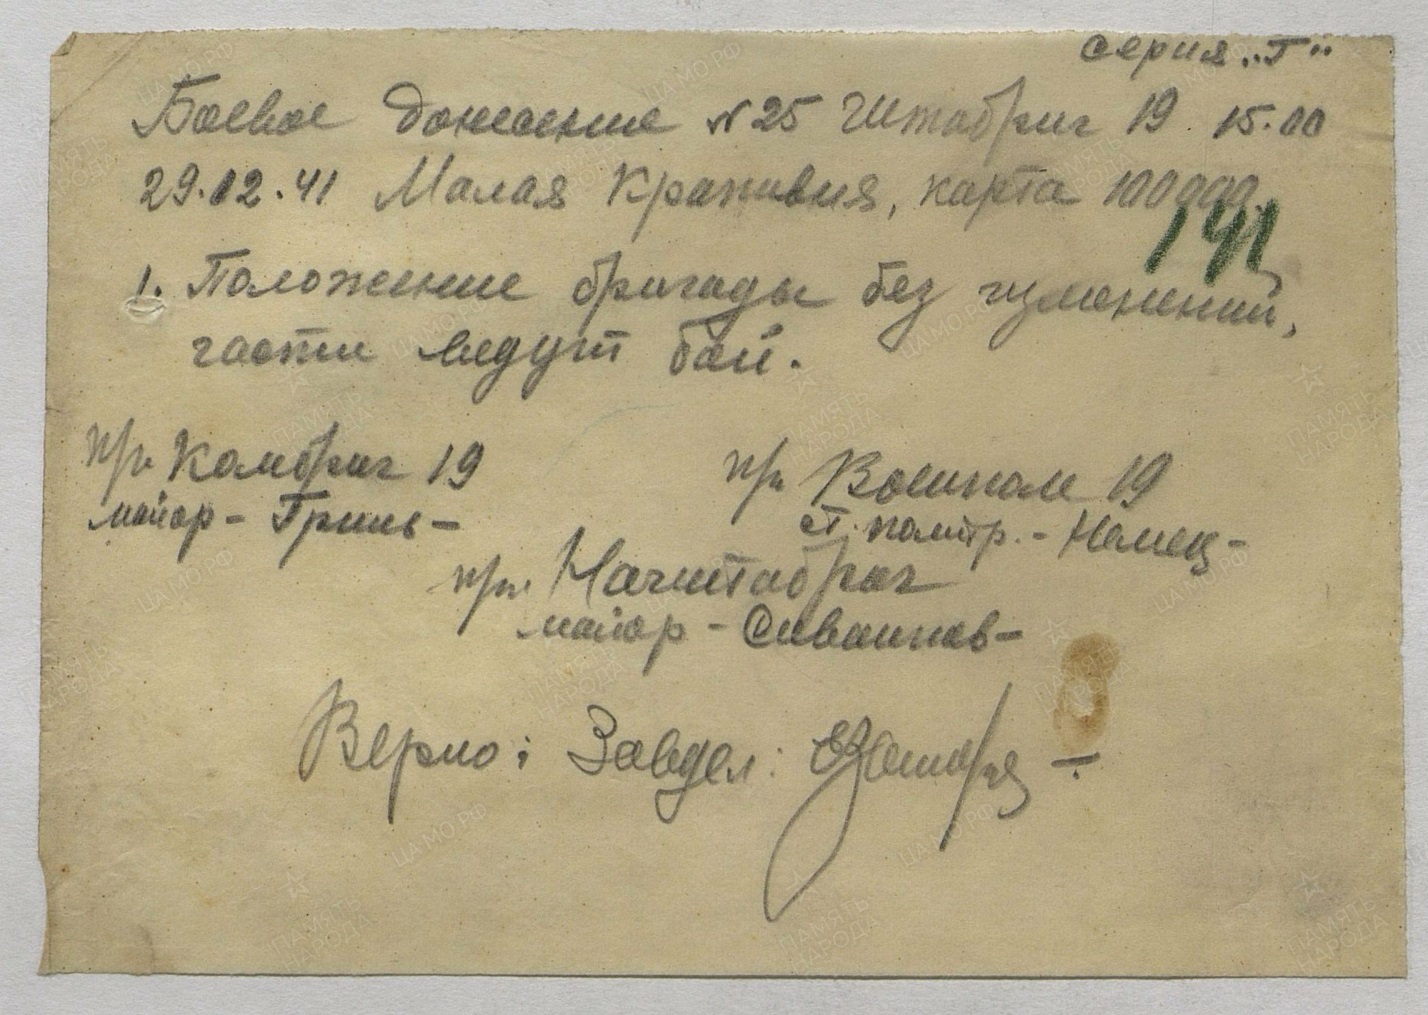 серия „Г“
Боевое донесение №25 Штабриг 19 15.00
29.12.41 Малая Крапивня, карта 100000.
141
1. Положение бригады без изменений,
части ведут бой.
пр. Комбриг 19
майор - Гринь -
пр. Военком 19
ст. политр. - Немец -
пр. Начштабриг
майор - Сиванков -
Верно: Завдел: